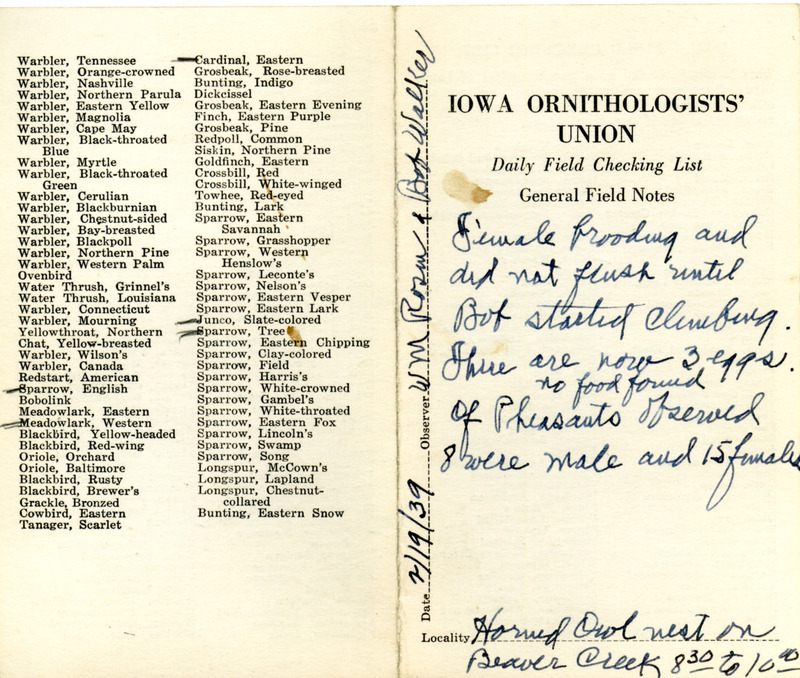 Warbler, Tennessee
Warbler, Orange-crowned
Warbler, Nashville
Warbler, Northern Parula
Warbler, Eastern Yellow
Warbler, Magnolia
Warbler, Cape May
Warbler, Black-throated
Blue
Warbler, Myrtle
Warbler, Black-throated
Green
Warbler, Cerulian
Warbler, Blackburnian
Warbler, Chestnut-sided
Warbler, Bay-breasted
Warbler, Blackpoll
Warbler, Northern Pine
Warbler, Western Palm
Ovenbird
Water Thrush, Grinnel's
Water Thrush, Louisiana
Warbler, Connecticut
Warbler, Mourning
Yellowthroat, Northern
Chat, Yellow-breasted
Warbler, Wilson's
Warbler, Canada
Redstart, American
Sparrow, English
Bobolink
Meadowlark, Eastern
Meadowlark, Western
Blackbird, Yellow-headed
Blackbird, Red-wing
Oriole, Orchard
Oriole, Baltimore
Blackbird, Rusty
Blackbird, Brewer's
Grackle, Bronzed
Cowbird, Eastern
Tanager, Scarlet
Cardinal, Eastern
Grosbeak, Rose-breasted
Bunting, Indigo
Dickcissel
Grosbeak, Eastern Evening
Finch, Eastern Purple
Grosbeak, Pine
Redpoll, Common
Siskin, Northern Pine
Goldfinch, Eastern
Crossbill, Red
Crossbill, White-winged
Towhee, Red-eyed
Bunting, Lark
Sparrow, Eastern
Savannah
Sparrow, Grasshopper
Sparrow, Western
Henslow's
Sparrow, Leconte's
Sparrow, Nelson's
Sparrow, Eastern Vesper
Sparrow, Eastern Lark
Junco, Slate-colored
Sparrow, Tree
Sparrow, Eastern Chipping
Sparrow, Clay-colored
Sparrow, Field
Sparrow, Harris's
Sparrow, White-crowned
Sparrow, Gambel's
Sparrow, White-throated
Sparrow, Eastern Fox
Sparrow, Lincoln's
Sparrow, Swamp
Sparrow, Song
Longspur, McCown's
Longspur, Lapland
Longspur, Chestnut-
collared
Bunting, Eastern Snow
Date 2/19/39 Observer Wm Rosin & Bob Walker
IOWA ORNITHOLOGISTS'
UNION
Daily Field Checking List
General Field Notes
Female brooding and
did not flush until
Bob started climbing.
There are now 3 eggs.
no food found
Of Pheasants observed
8 were male and 15 females
Locality Horned Owl nest on
Beaver Creek 8 30 to 10 00